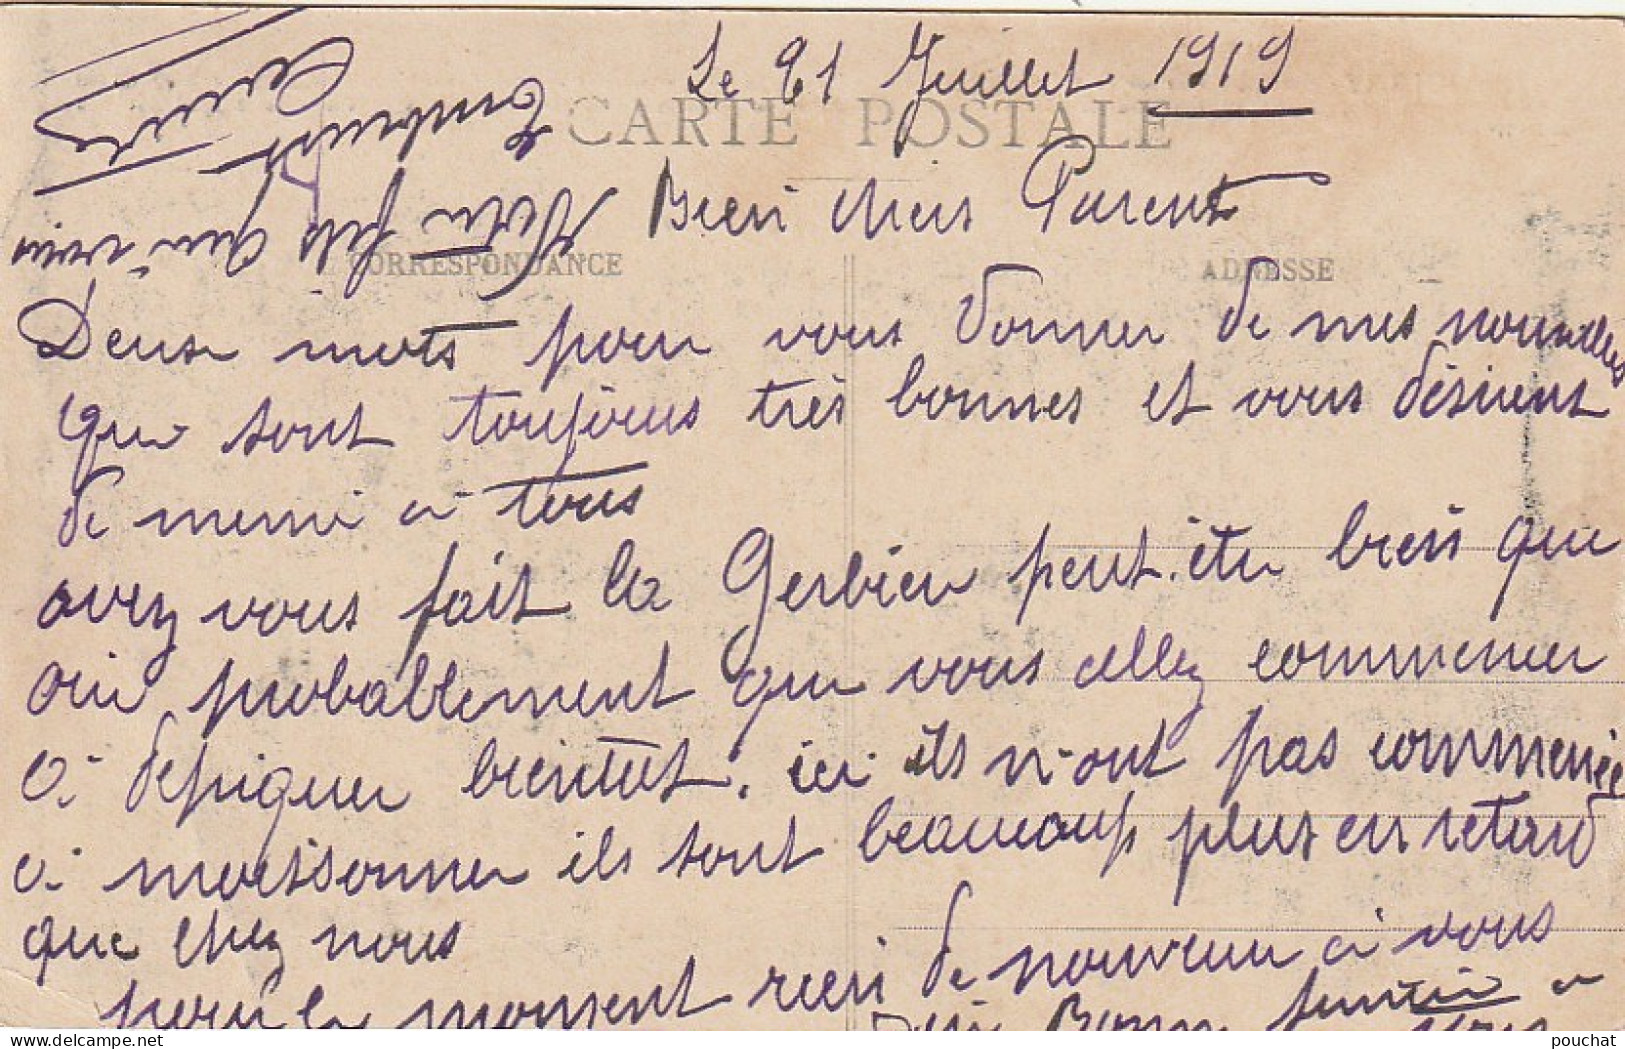 Le 21 Juillet 1919
CARTE POSTALE
Bien chers Parent
CORRESPONDANCE
ADRESSE
Deux mots pour vous donner de mes nouvelles
que sont toujours très bonnes et vous désirent
de meme a tous
avez vous fait la Gerbieu peut etre bien que
oui probablement que vous allez commencer
a dépiquer bientôt. ici ils n'ont pas commencé
a moissonner ils sont beaucoup plus en retard
que chez nous
pour le moment rien de nouveau a vous
dire Bonne a
vous
Votre fils qui vous
Embrasse
tous
pouchat